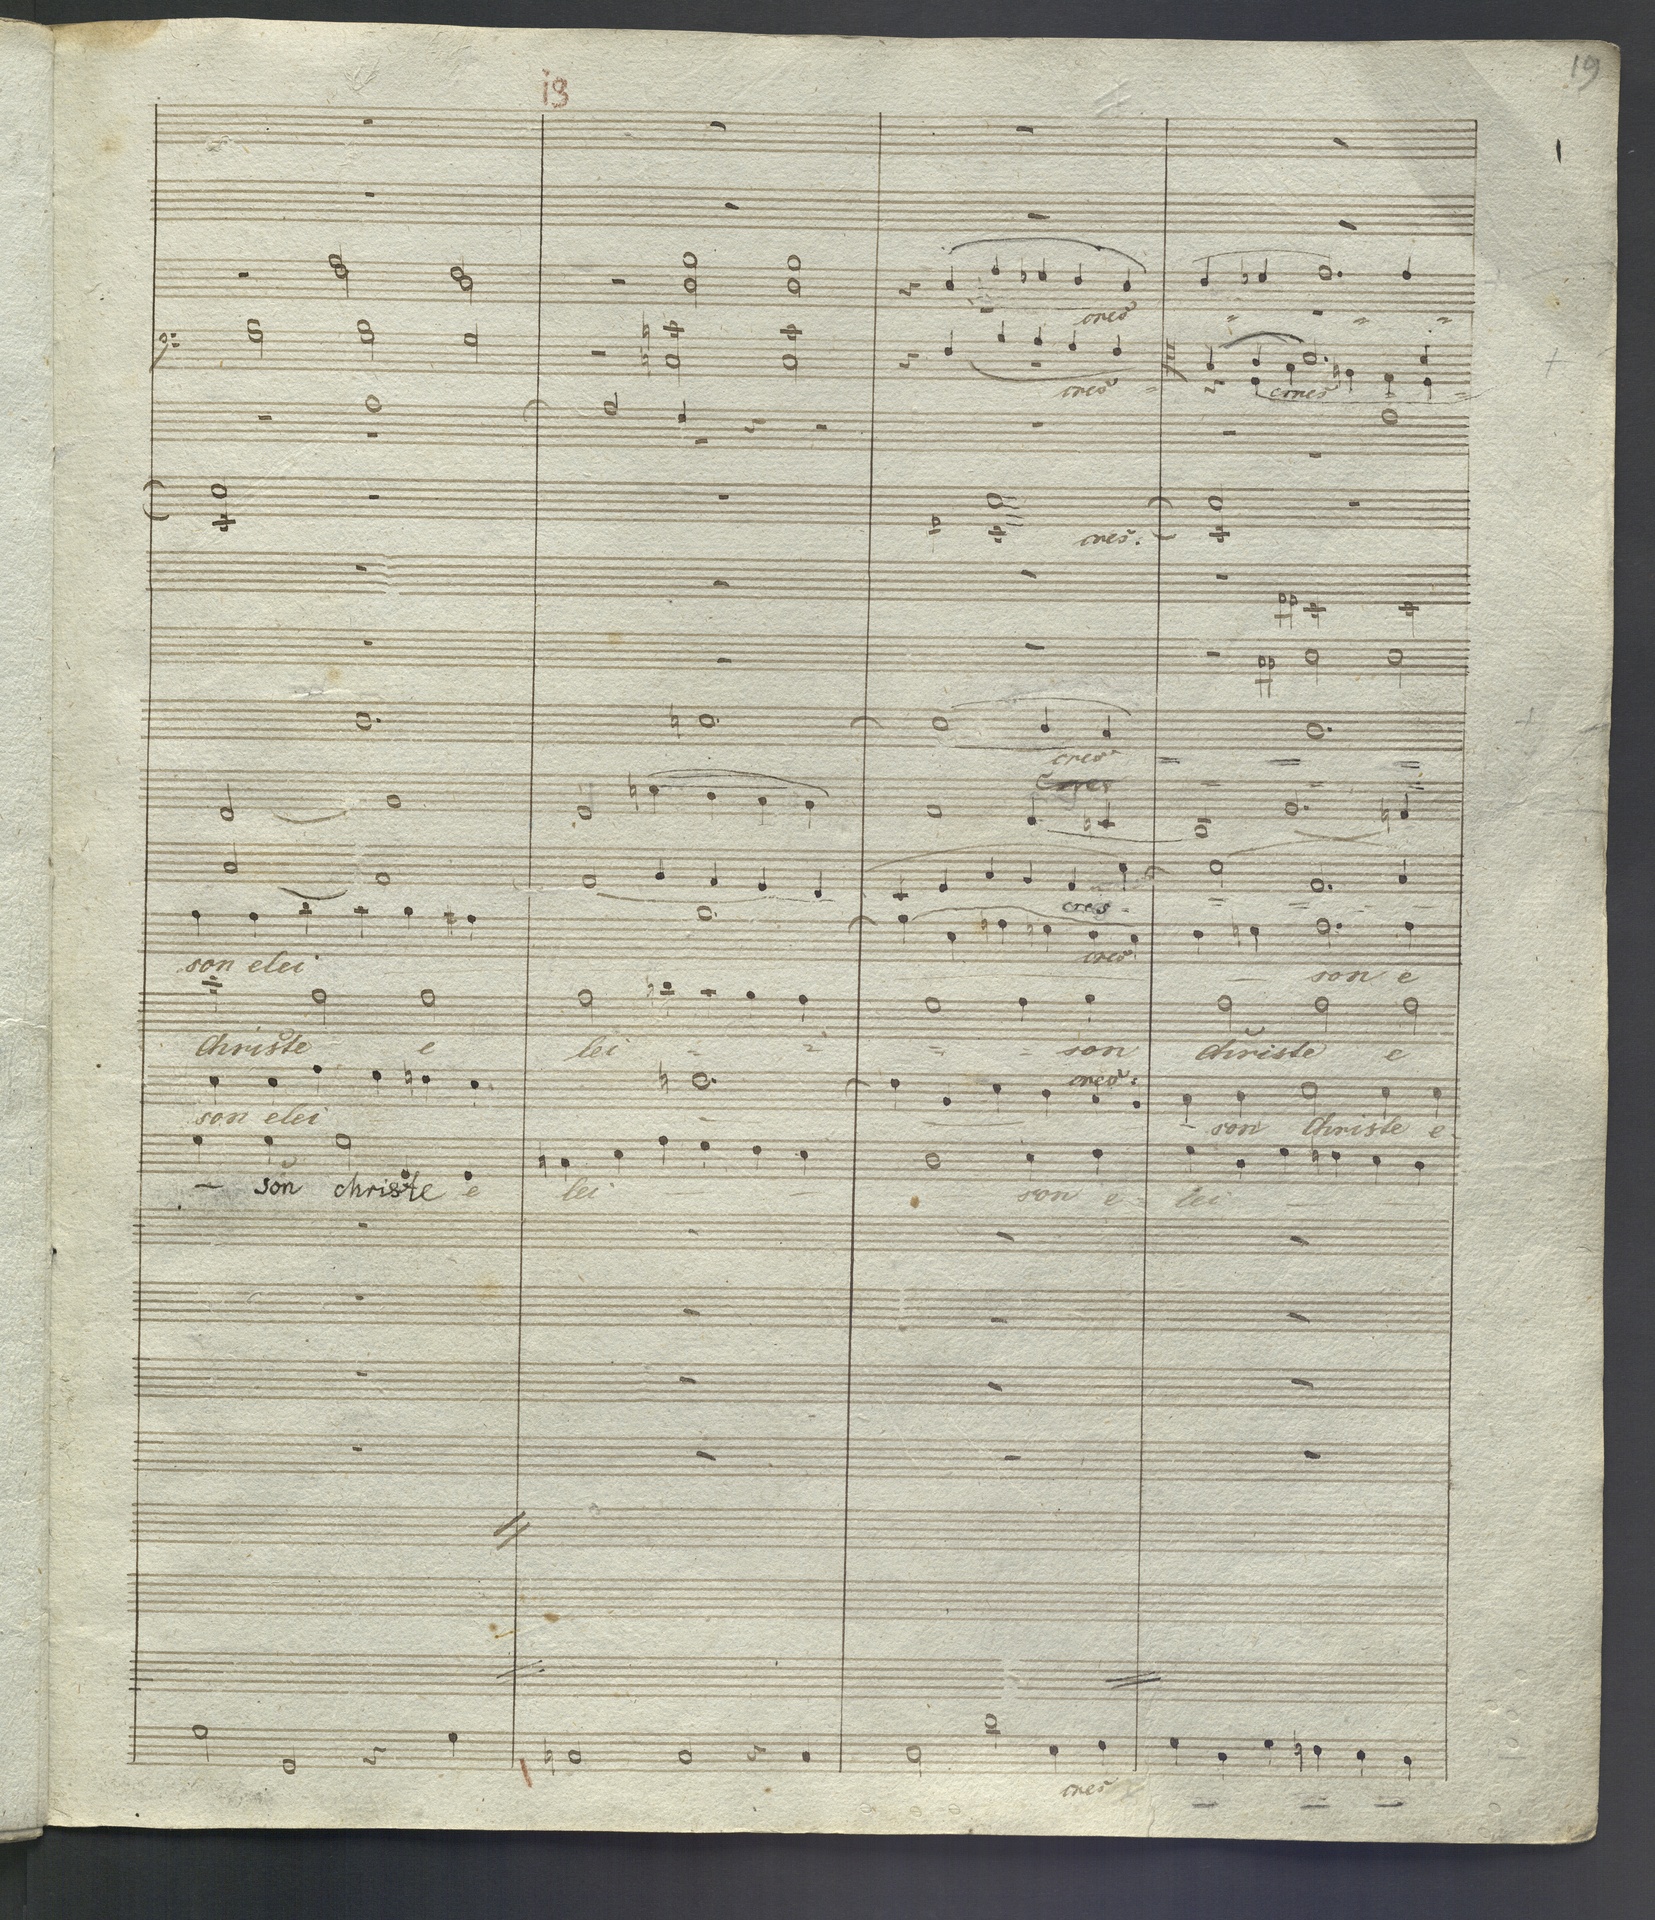 19
13
cres
cres
cres
cres.
cres
cres
cres
cres
son elei
son e
christe e lei son christe e
cres:
son elei
son christe e
son christe e lei son e lei
cres